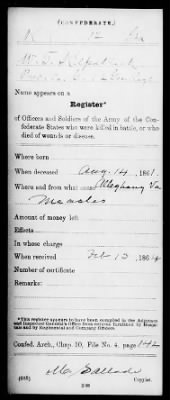 (CONFEDERATE.)
12
Name appears on a
Register*
of Officers and Soldiers of the Army of the Con-
federate States who were killed in battle, or who
died of wounds or disease.
Where born
When deceased Aug. 14, 1861.
Where and from what cause Alleghany Va
Measles
Amount of money left
Effects
In whose charge
When received Feb 13, 1864
Number of certificate
Remarks:
*This register appears to have been compiled in the Adjutant
and Inspector General's Office from returns furnished by Hospi-
tals and by Regimental and Company Officers.
Confed. Arch., Chap. 10, File No. 4, page 142
Copyist.